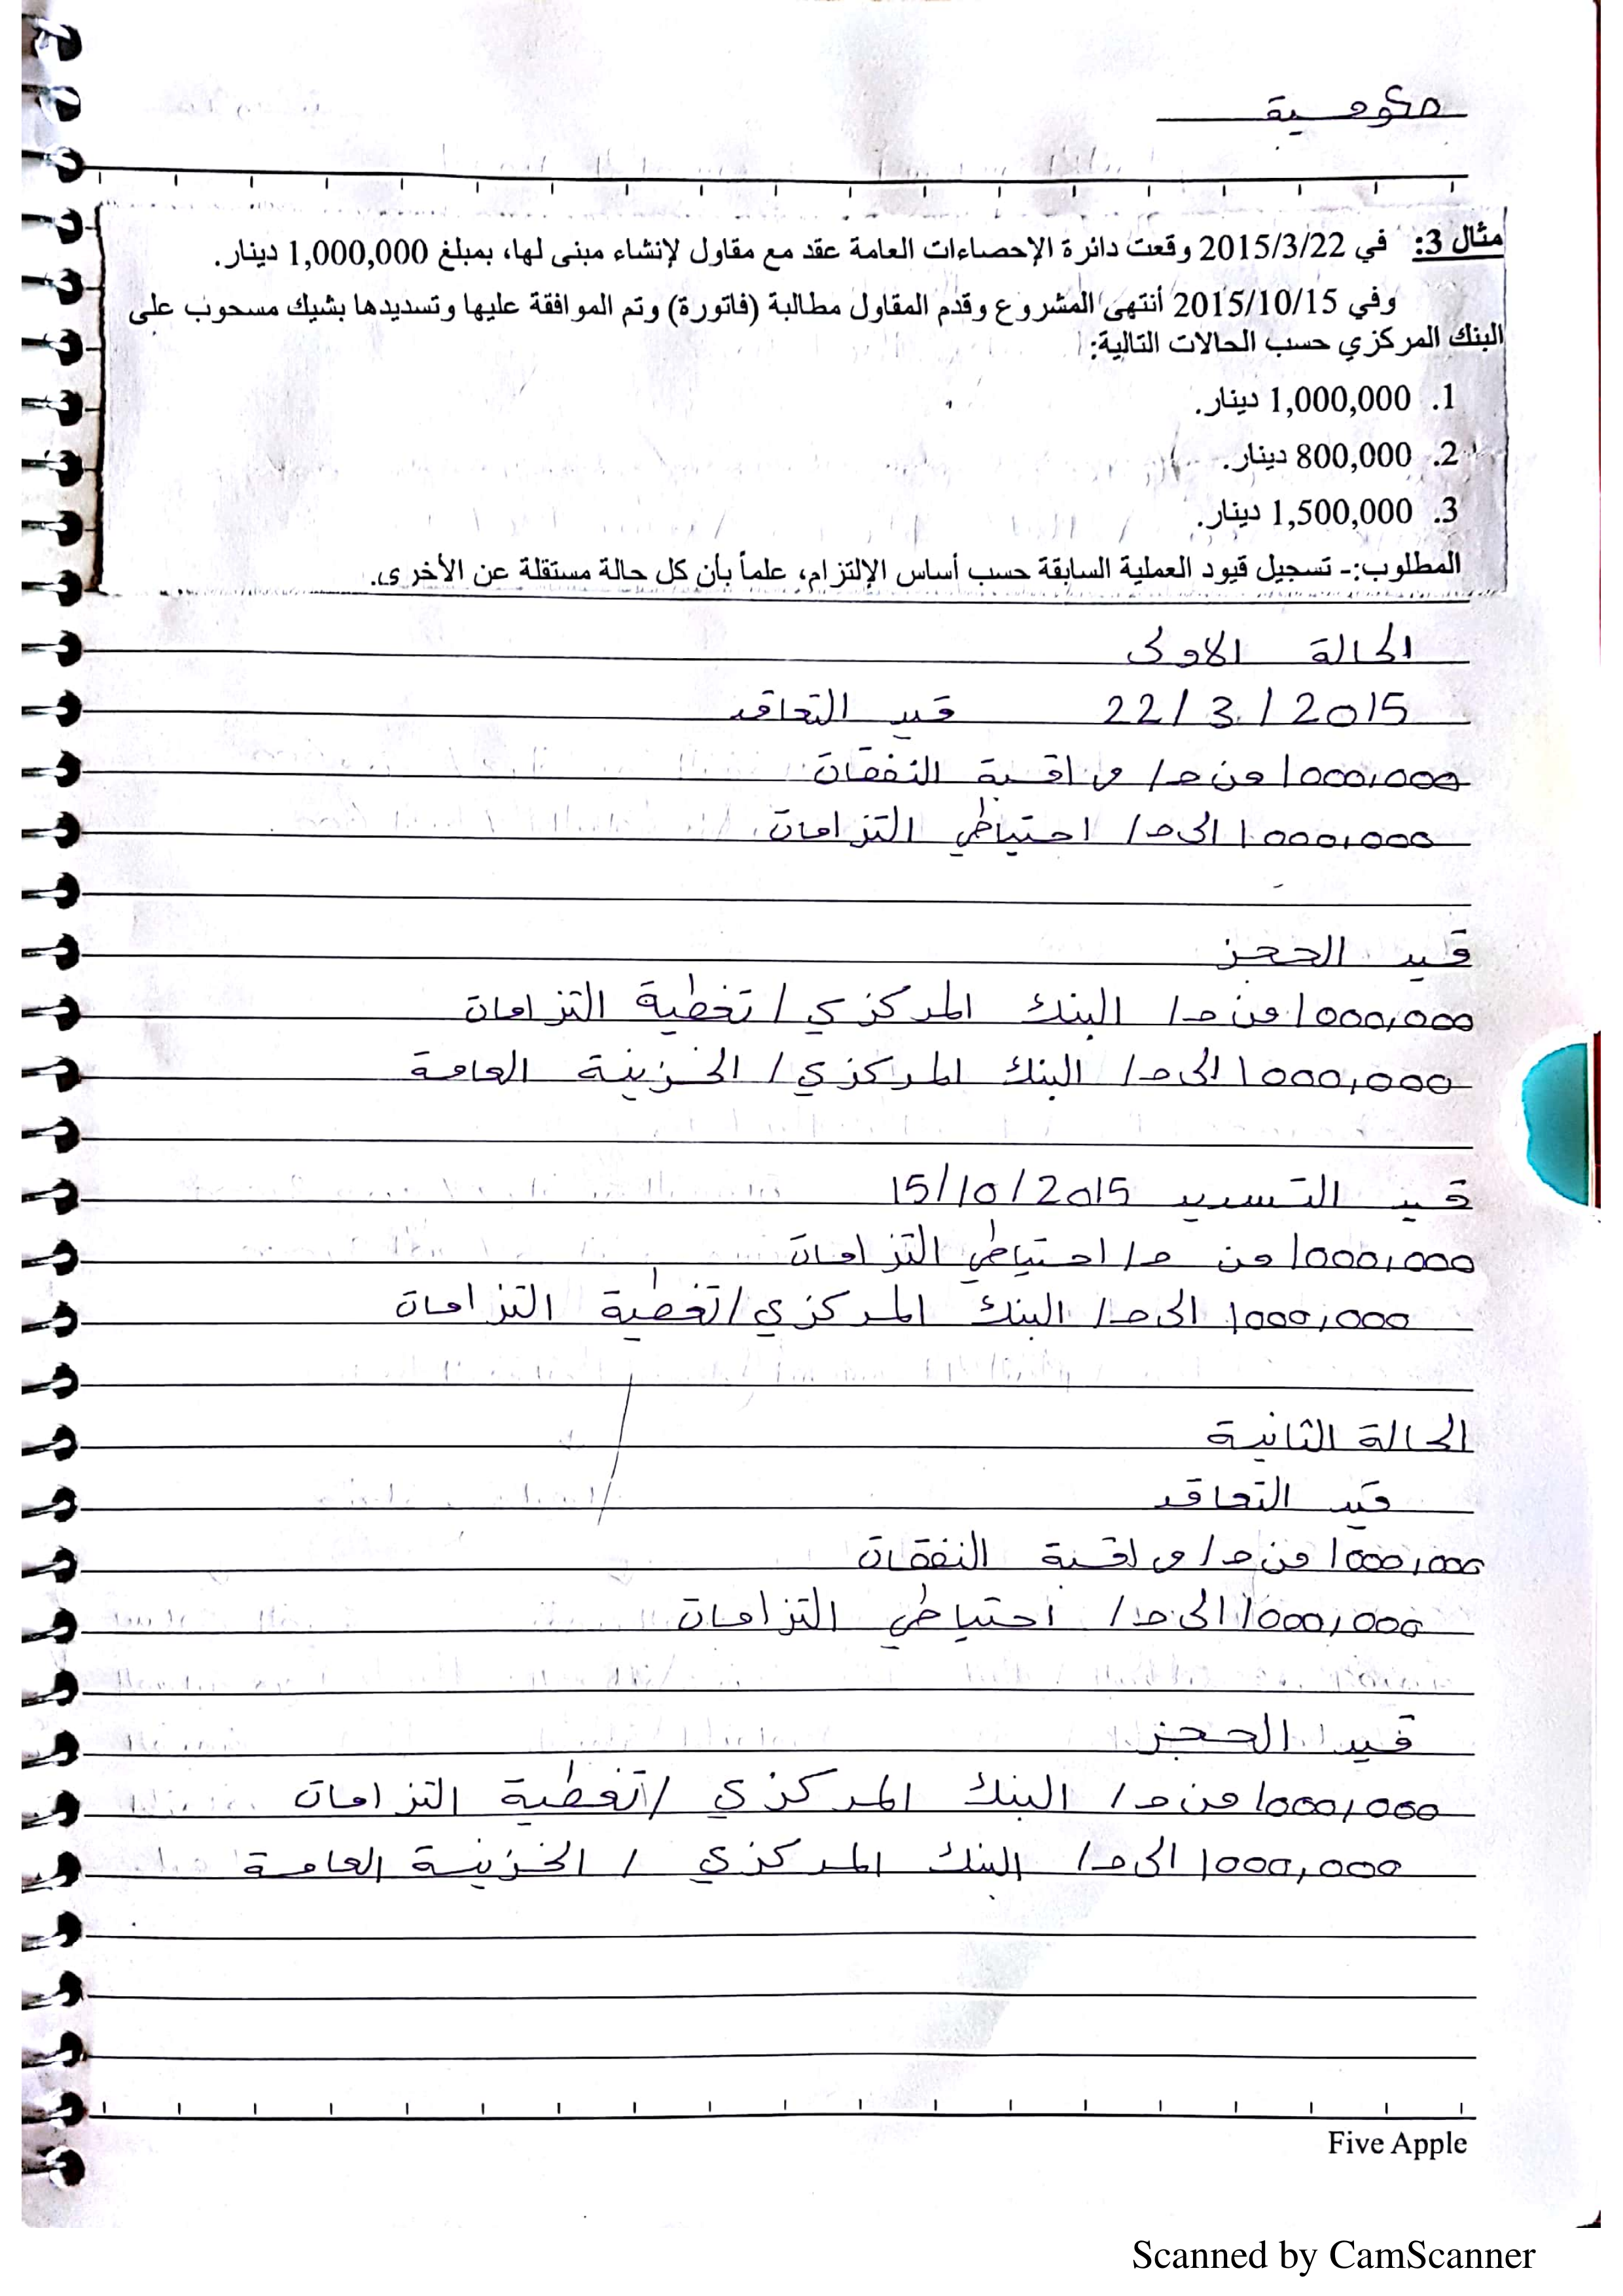 حكومية
مثال 3: في 2015/3/22 وقعت دائرة الإحصاءات العامة عقد مع مقاول لإنشاء مبنى لها، بمبلغ 1,000,000 دينار.
وفي 2015/10/15 أنتهى المشروع وقدم المقاول مطالبة (فاتورة) وتم الموافقة عليها وتسديدها بشيك مسحوب على
البنك المركزي حسب الحالات التالية:
1. 1,000,000 دينار.
2. 800,000 دينار.
3. 1,500,000 دينار.
المطلوب:- تسجيل قيود العملية السابقة حسب أساس الإلتزام، علماً بأن كل حالة مستقلة عن الأخرى.
الحالة الاولى
22/3/2015 قيد التعاقد
1000,000 من ح/ مراقبة النفقات
1000,000 الى ح/ احتياطي التزامات
قيد الحجز
1000,000 من ح/ البنك المركزي / تغطية التزامات
1000,000 الى ح/ البنك المركزي / الخزينة العامة
قيد التسديد 15/10/2015
1000,000 من ح/ احتياطي التزامات
1000,000 الى ح/ البنك المركزي / تغطية التزامات
الحالة الثانية
قيد التعاقد
1000,000 من ح/ مراقبة النفقات
1000,000 الى ح/ احتياطي التزامات
قيد الحجز
1000,000 من ح/ البنك المركزي / تغطية التزامات
1000,000 الى ح/ البنك المركزي / الخزينة العامة
Five Apple
Scanned by CamScanner